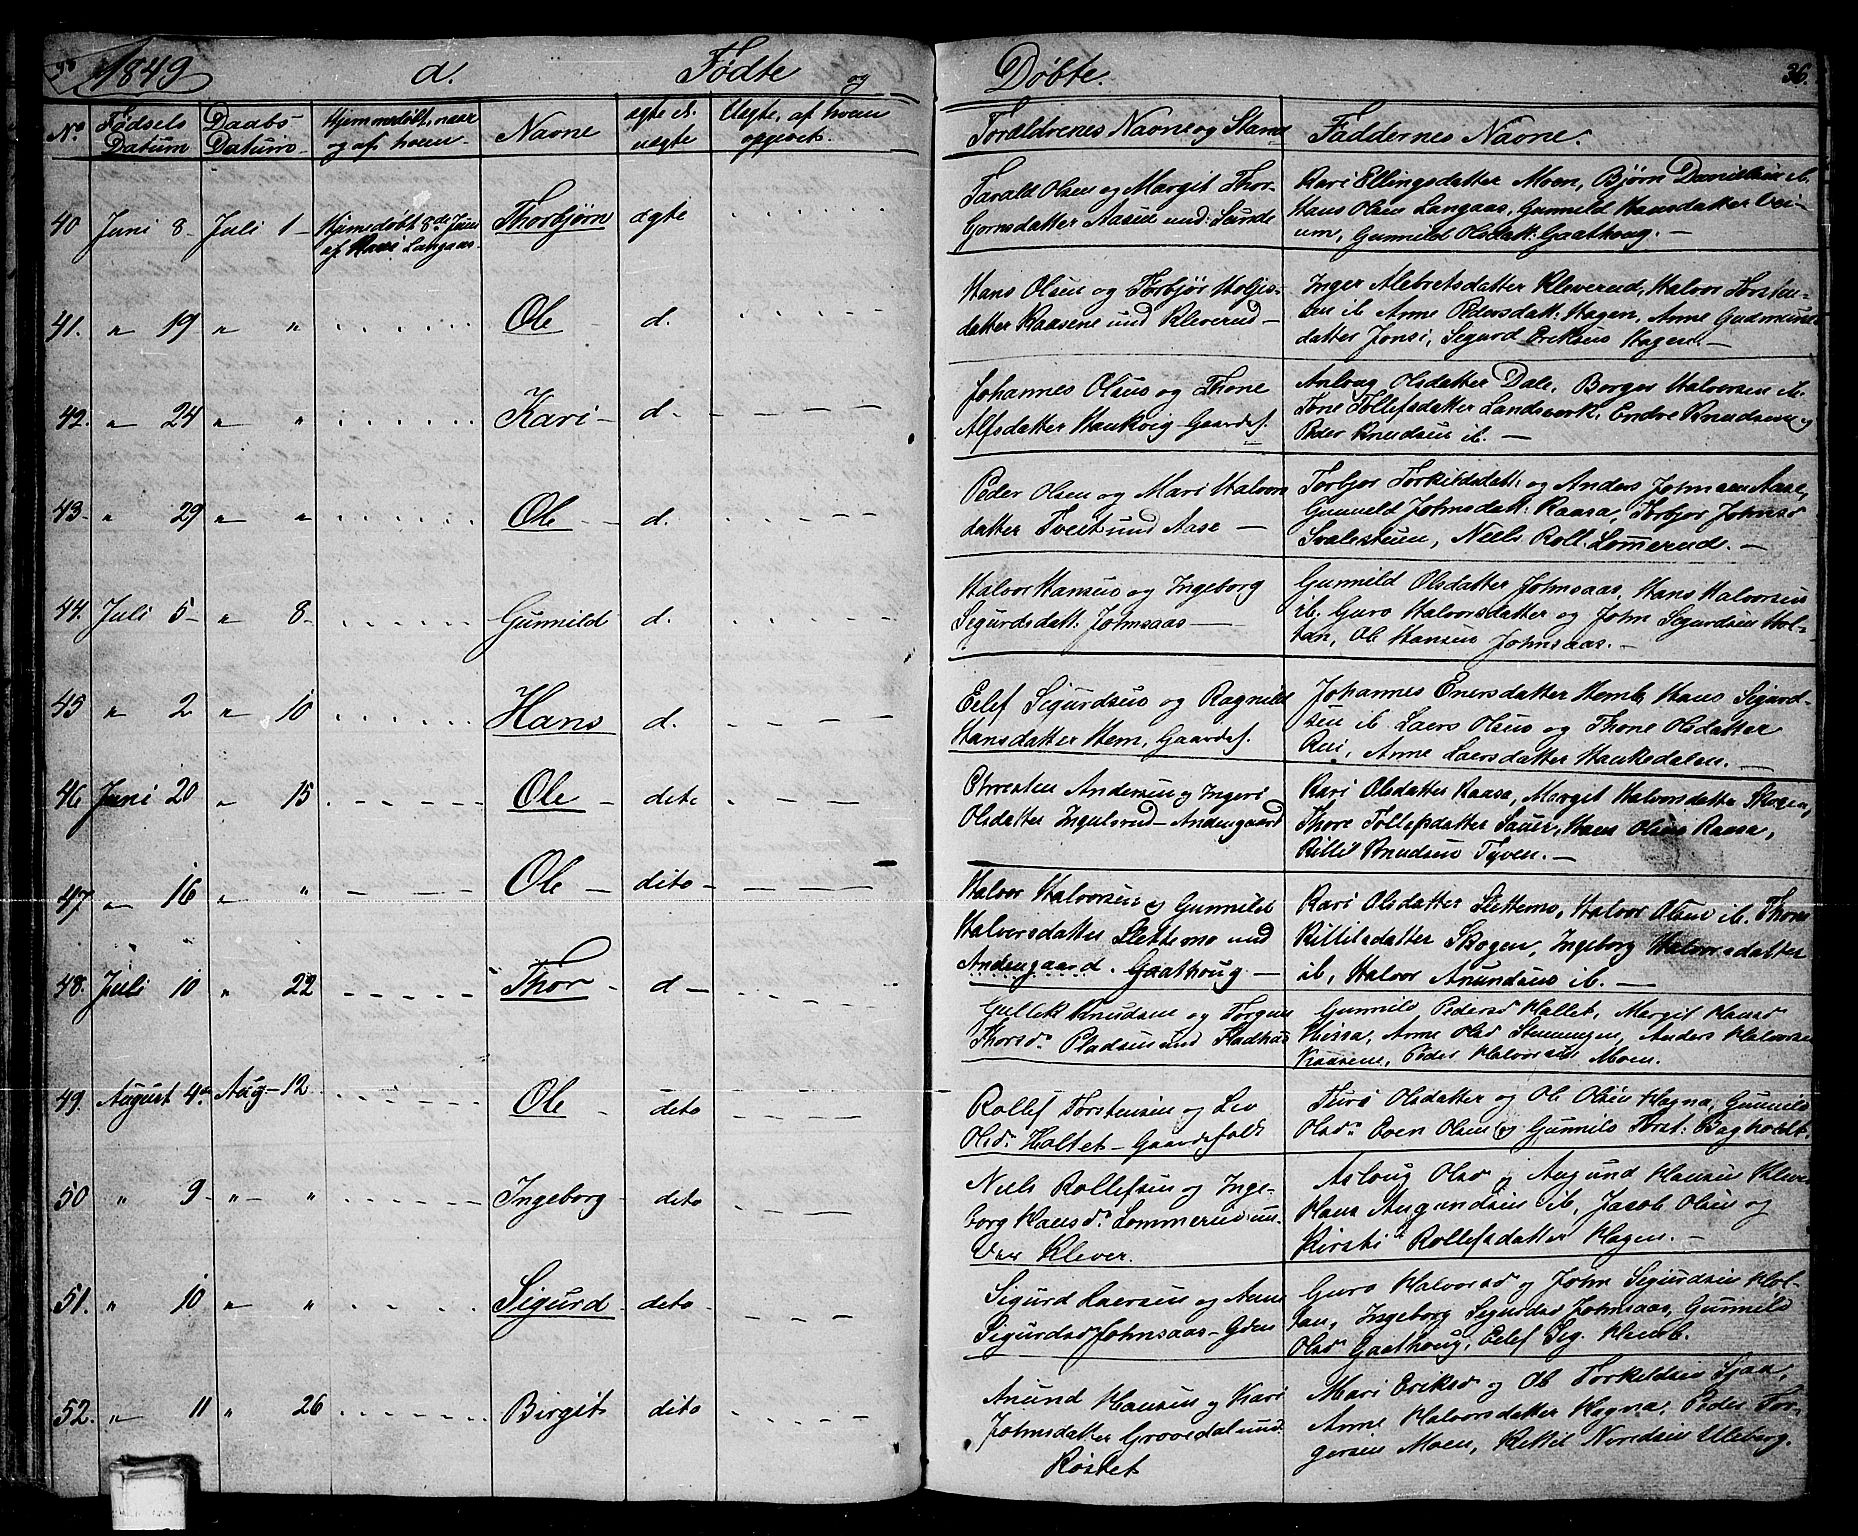 1849 a. Fødte og Døbte. 36.
No Fødsels Datum Daabs Datum Hjemmedøbt, naar og af hvem Navne ægte el. uægte Uægte, af hvem opgivet Forældrenes Navne og Stand Faddernes Navne.
40 Juni 8 Juli 1 Hjemdøbt 8de Juni af Langaas Thorbjørn ægte
Tarald Olsen og Margit Thor-
Gornsdatter Aasen und: Sunde
Kari Ellingsdatter Moen, Bjørn Danielsen ib.
Hans Olsen Langaas, Gunnild Hansdatter
um, Gunnild Olsdatt: Gaathoug.
41. " 19 " " Ole d.
Hans Olsen og Torbjør Holjes-
datter Kaasene und Kleverud
Inger Alebretsdatter Kleverud, Halvor Torsten-
sen ib Anne Pedersdatt: Hagen, Anne Gudmunds
datter Jonsi, Segurd Eriksens Hagen.
42. " 24 " " Kari d.
Johannes Olsens og Thone
Alfsdatter Haukvig Gaardef.
Anlaug Olsdatter Dale, Borger Halvorsen ib.
Tone Tollefsdatter Landsverk, Endre Knudsens og
Peder Knudsen ib.
43 " 29 " " Ole d.
Peder Olsen og Mari Halvors
datter Tveit und Aase
Torbjor Torkildsdatt: og Anders Johnsen Aase,
Gunnild Johnsdatt: Kaasa, Torbjor Johnsd
Svalesteen, Niels Roll. Lomerud.
44. Juli 5 " 8 Gunnild d.
Halvor Hansens og Ingeborg
Segurdsdatt: Johnsaas
Gunnild Olsdatter Johnsaas, Hans Halvorsen
ib. Guro Halvorsdatter og John Segurdsen Hol-
tan, Ole Hansens Johnsaas.
45 " 2 " 10 Hans d.
Eelef Sigurdsens og Ragnild
Hansdatter Hem, Gaardef.
Johannes Enersdatter Hemb, Hans Sigurd-
sen ib Laers Olsens og Thone Olsdatter
Rui, Anne Laersdatter Haukedalen.
46 Juni 20 " 15 Ole dito
Chresten Andersen og Ingeri
Olsdatter Ingulsrud Andengaard
Kari Olsdatter Kaasa, Margit Halvorsdatter Skogen,
Thore Tollefsdatter Sauer, Hans Olsens Kaasa,
Killil Knudsens Tyven.
47 " 16 " " Ole dito
Halvor Halvorsen og Gunnild
Halversdatter Slettemo und
Andengaard. Gaathoug
Kari Olsdatter Slettemo, Halvor Olsen ib. Thone
Kittilsdatter Skogen, Ingeborg Halvorsdatter
ib, Halvor Anundsens ib.
48. Juli 10 " 22 Thor d
Gullek Knudsen og Torgun
Thorsd. Pladsen und Fladhus
Gunnild Pedersd Hallet, Margit Hansd
Hissa, Anne Olsd Stenningen, Anders Halvorsen
Kaasene, Peder Halvorsen Moen.
49. August 4de Aug 12 Ole dito
Rollef Torstensen og Liv
Olsd. Holtet Gaardefolk
Turi Olsdatter og Ole Olsen Hagna, Gunnild
Olsd. Even Olsen og Gunnild Torst: Bagholdt.
50 " 9 " " Ingeborg dito
Niels Rollefsen og Inge-
borg Hansd. Lommerud un.
Klever.
Aslaug Olsd og Augund Hansen Klever
Hans Augundsen ib, Jacob Olsen og
Kirsti Rollefsdatter Hagen.
51. " 10 " " Sigurd dito
Sigurd Laersen og Anne
Sigurdsd Johnsaas
Guro Halvorsd og John Sigurdsen Hol-
tan, Ingeborg Segurdsd Johnsaas, Gunnild
Olsd Gaathoug, Eelef Sig. Hemb.
52. " 11 " 26 Birgit dito
Anund Hansen og Kari
Johnsdatter Grovedal und
Røstet
Mari Eriksd og Ole Torkeldsen
Anne Halvorsdatter Hagna, Peder Tor-
gersen Moen, Kittil Niridsen Uleberg.